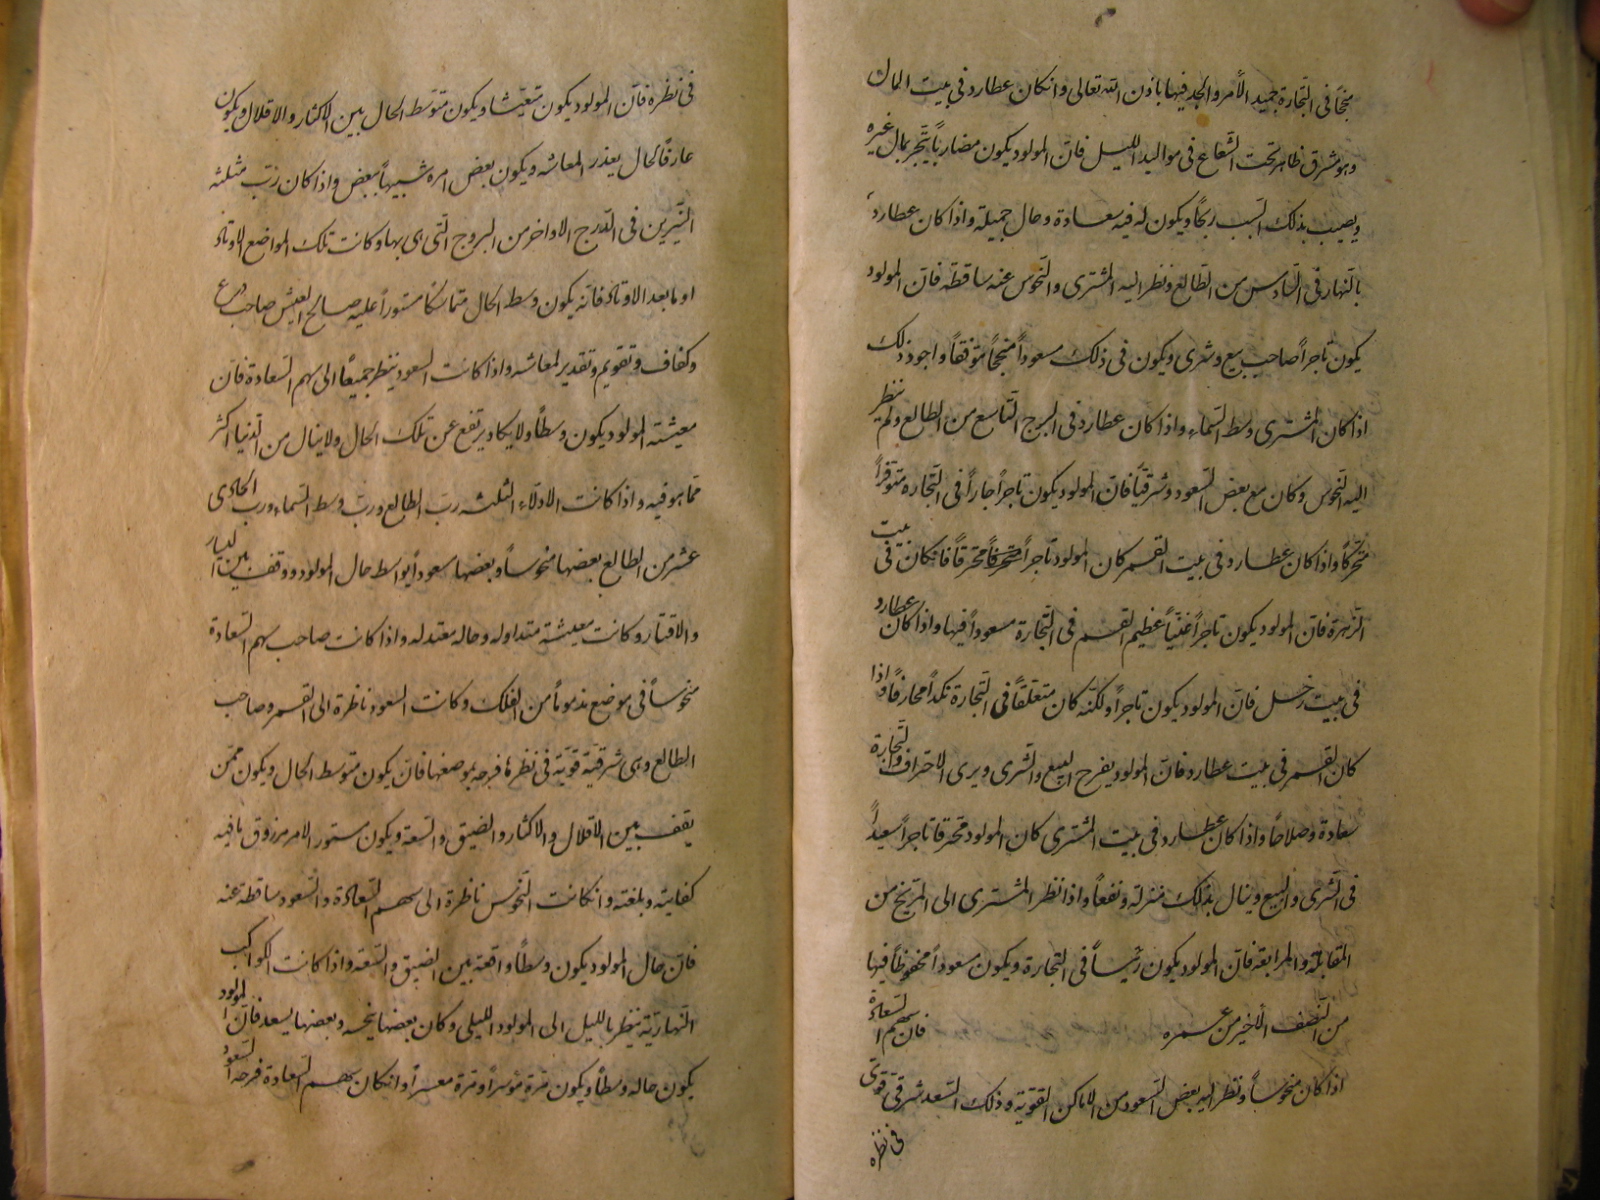 منجحاً فى التجارة حميد الأمر والجد فيها باذن الله تعالى وانكان عطارد فى بيت المال
وهو مشرق ظاهر تحت الشعاع فى مواليد الليل فان المولود يكون مضارباً يتّجر بمال غيره
ويصيب بذلك السبب ربحاً ويكون له فيه سعادة وحال جميلة واذا كان عطارد
بالنهار فى السادس من الطالع ونظر اليه المشترى والنحوس عنه ساقطة فان المولود
يكون تاجراً صاحب بيع وشرى ويكون فى ذلك مسعوداً منجحاً موفقاً واجود ذلك
اذا كان المشترى وسط السماء واذا كان عطارد فى البرج التاسع من الطالع ولم ينظر
اليه النحوس وكان مع بعض السعود وشرقياً فان المولود يكون تاجراً جاراً فى التجارة متوفراً
متحركاً واذا كان عطارد فى بيت القمر كان المولود تاجراً متحركاً محترفاً فانكان فى بيت
الزهرة فان المولود يكون تاجراً غنياً عظيم القسم فى التجارة مسعوداً فيها واذا كان عطارد
فى بيت زحل فان المولود يكون تاجراً ولكنه كان متعلقاً فى التجارة نكداً محارفاً واذا
كان القمر فى بيت عطارد فان المولود يفرح البيع والشرى ويرى الاحتراف والتجارة
سعادة وصلاحاً واذا كان عطارد فى بيت المشترى كان المولود محترفا تاجراً سعيداً
فى الشرى والبيع وينال بذلك منزلة ونفعاً واذا نظر المشترى الى المريخ من
المقابلة والمرابعة فان المولود يكون رئيساً فى التجارة ويكون مسعوداً محفوظاً فيها
من النصف الأخير من عمره فان سهم السعادة
اذا كان منحوساً ونظر اليه بعض السعود من الاماكن القوية وذلك السعد شرقى قوى
فى نظره
فى نظره فان المولود يكون متعيّشا ويكون متوسط الحال بين الاكثار والاقلال ويكون
عارفاً لحال يعذر المعاشه ويكون بعض امره شبيهاً ببعض واذا كان ربّ مثلثه
النيّرين فى الدرج الاواخر من البروج التى هى بها وكانت تلك المواضع الاوتاد
او ما بعد الاوتاد فانه يكون وسط الحال متماسكا مستوراً عليه صالح العيش صاحب
وكفاف وتقويم وتقدير لمعاشه واذا كانت السعود ينظر جميعاً الى سهم السعادة فان
معيشته المولود يكون وسطاً ولا يكاد يرتفع عن تلك الحال ولا ينال من الدنيا اكثر
مما هو فيه واذا كانت الادلاء الثلثه ربّ الطالع وربّ وسط السماء ورب الحادى
عشر من الطالع بعضها منحوساً وبعضها مسعوداً يواسط حال المولود ووقف بين اليسار
والاقتار وكانت معيشته متداوله وحاله معتدله واذا كانت صاحب سهم السعادة
منحوساً فى موضع مذموماً من الفلك وكانت السعود ناظرة الى القمر وصاحب
الطالع وهى شرقية قوية فى نظرها فرحه بموضعها فان يكون متوسط الحال ويكون ممن
يقف بين الاقلال والاكثار والضيق والسعة ويكون مستور الامر مرزوق ما فيه
كفايته وبلغته وانكانت النحوس ناظرة الى سهم السعادة والسعود ساقطة عنه
فان حال المولود يكون وسطاً واقعة بين الضيق والسعة واذا كانت الكواكب
النهارية ينظر بالليل الى المولود الليلى وكان بعضها ينحسه وبعضها يسعد فان المولود
يكون حاله وسطاً ويكون مرة موسراً ومرة معسراً وانكان سهم السعادة فرحه السعود